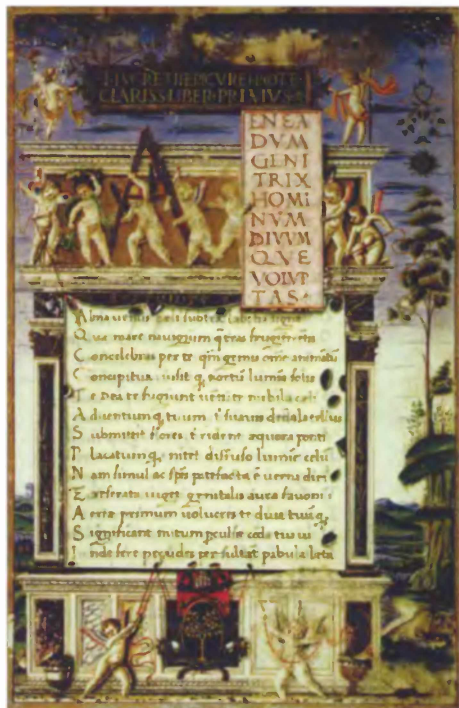 T·LVCRETII EPICVREI POETE
CLARISS·LIBER·PRIMVS
A
ENEA
DVM
GENI
TRIX
HOMI
NVM
DIVVM
QVE
VOLVP
TAS·
Alma venus celi subter labentia signa
Que mare navigerum q̃ terras frugiferentes
Concelebras per te qm̃ genus omne animantum
Concipitur visit q, exortum lumina solis
Te Dea te fugiunt venti te nubila celi
Adventumq, tuum t̃ suavis dedala tellus
Submittit flores t̃ rident aequora ponti
Placatumq, nitet diffuso lumine celum
Nam simul ac spẽs patefacta ẽ verna diei
Et reserata viget genitalis aura favoni
Aeriae primum volucres te diva tuumq,
Significant initum perculse corda tua vi
Inde fere pecudes persultant pabula leta